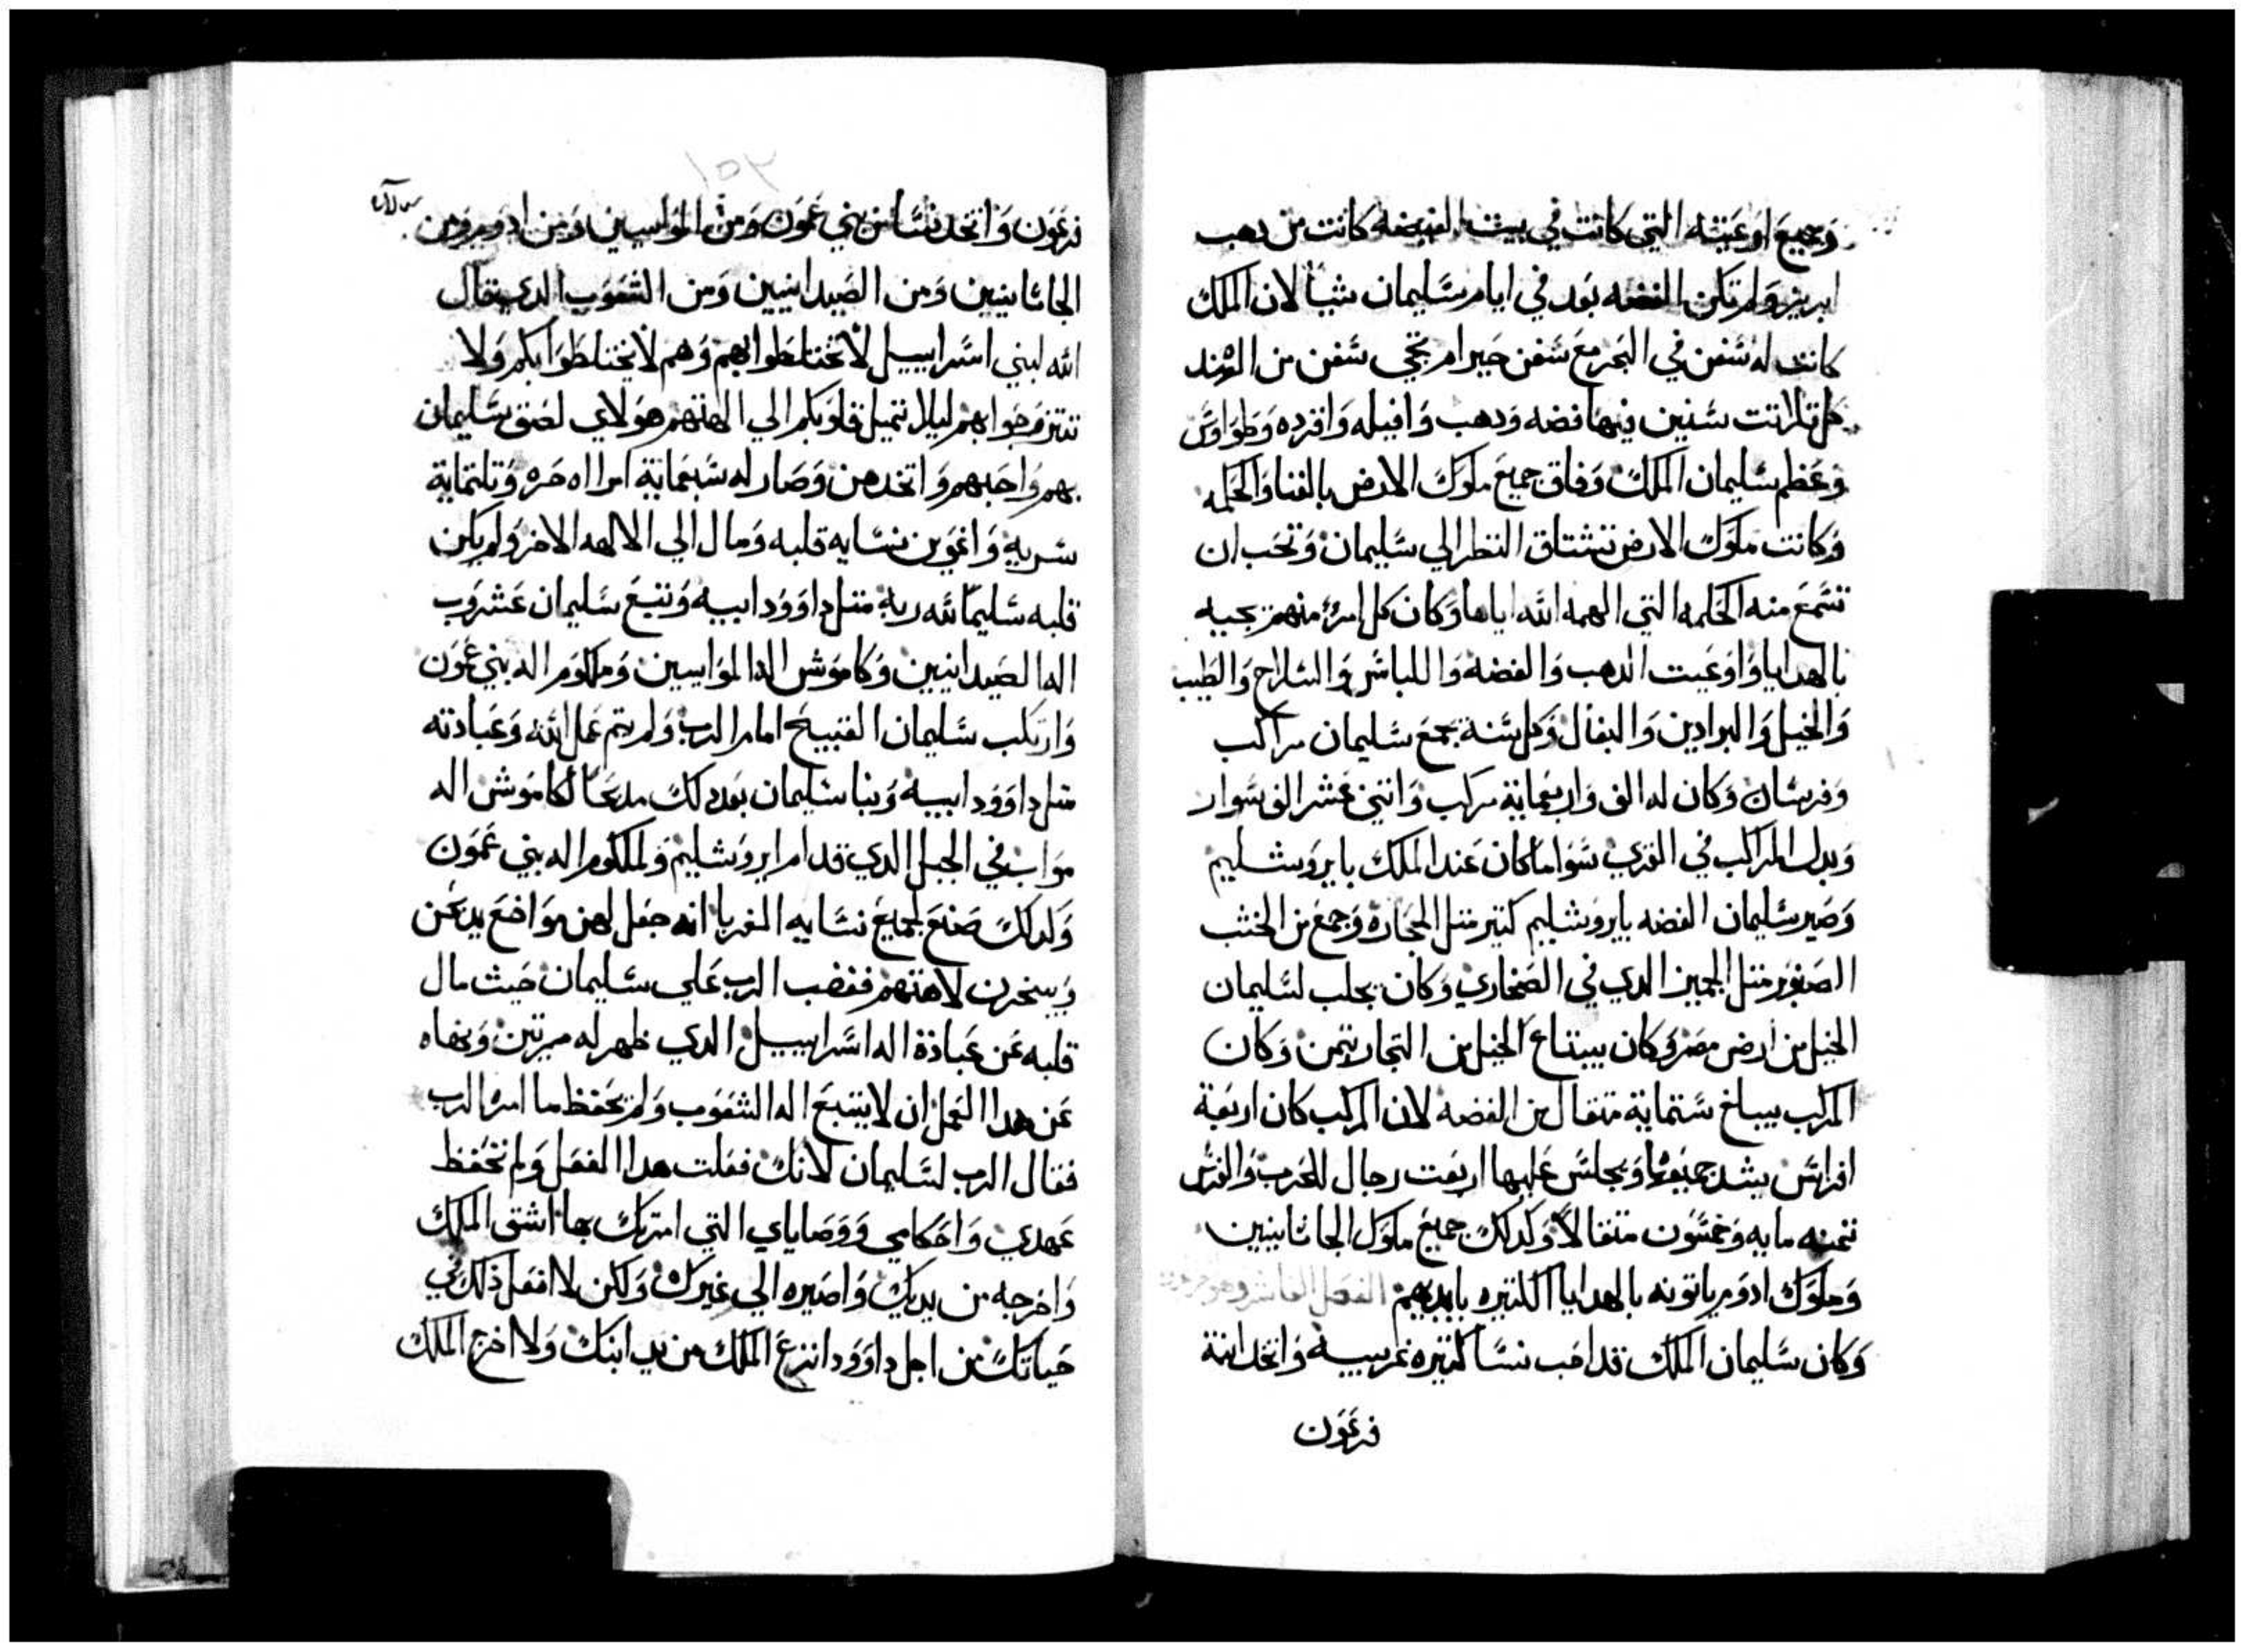 وجميع اوعيته التي كانت في بيت الغيضه كانت من دهب
ابريز ولم تكن الفضه تعد في ايام سليمان شيا لان الملك
كانت له سفن في البحر مع سفن حيرام تجي سفن من الهند
كل تلاتت سنين فيها فضه ودهب وافيله واقرده وطواوس
وعظم سليمان الملك وفاق جميع ملوك الارض بالغنا والحكمه
وكانت ملوك الارض تشتاق النظر الي سليمان وتحب ان
تسمع منه الحكمه التي الهمه الله اياها وكان كل امرء منهم يجيه
بالهدايا واوعيت الدهب والفضه واللباس والسلاح والطيب
والخيل والبرادين والبغال وكل سنة يجمع سليمان مراكب
وفرسان وكان له الف واربعماية مركب واتني عشر الف سوار
وبدل المراكب في القري سوا ما كان عند الملك بايروشليم
وصير سليمان الفضه بايروشليم كتير متل الحجاره وجمع من الخشب
الصنوبر متل الجميز الدي في الصحاري وكان يجلب لسليمان
الخيل من ارض مصر وكان يبتاع الخيل من التجار بتمن وكان
المركب يبلغ ستماية متقال من الفضه لان المركب كان اربعة
افراس يشد جميعها ويجلس عليها اربعت رجال للحرب والفرس
تمنه مايه وخمسون متقالا وكدلك جميع ملوك الجاتانيين
وملوك ادوم ياتونه بالهدايا الكتيره بايديهم الفصل العاشر وهو
وكان سليمان الملك قد احب نسا كتيره غريبيه واتخد ابنة
فرعون
٢٥٢
فرعون واتخد نسا من بني عمون ومن المواسيين ومن ادوم ومن
الجاتانيين ومن الصيدانيين ومن الشعوب الدي قال
الله لبني اسراييل لا تختلطوا بهم وهم لا يختلطوا بكم ولا
تتزوجوا بهم ليلا تميل قلوبكم الي الهتهم هولاي لصق سليمان
بهم واحبهم واتخدهن وصار له سبعماية امراه حره وتلتماية
سريه واغوين نسايه قلبه ومال الي الالهه الاخر ولم يكن
قلبه سليما لله ربه متل داوود ابيه وتبع سليمان عشروب
اله الصيدانيين وكاموش اله المواسيين وملكوم اله بني عمون
وارتكب سليمان القبيح امام الرب ولم يتم عمل الله وعبادته
متل داوود ابيه وبنا سليمان بعد دلك مدبحا لكاموش اله
مواب في الجبل الدي قدام ايروشليم ولملكوم اله بني عمون
وكدلك صنع لجميع نسايه الغربا انه جعل لهن مواضع يدبحن
ويبخرن لالهتهم فغضب الرب علي سليمان حيث مال
قلبه عن عبادة اله اسراييل الدي ظهر له مرتين ونهاه
عن هدا العمل ان لا يتبع اله الشعوب ولم يحفظ ما امره الرب
فقال الرب لسليمان لانك فعلت هدا الفعل ولم تحفظ
عهدي واحكامي ووصاياي التي امرتك بها اشق الملك
واخرجه من يديك واصيره الي غيرك ولكن لا افعل ذلك في
حياتك من اجل داوود انزع الملك من يد ابنك ولا اخرج الملك